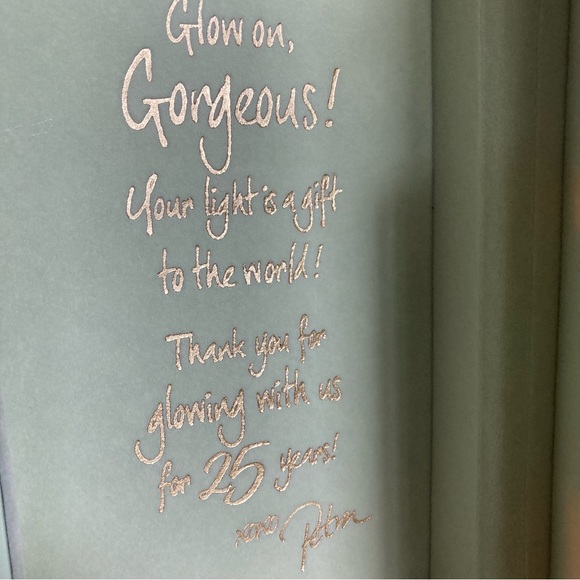 Glow on,
Gorgeous!
Your light is a gift
to the world!
Thank you for
glowing with us
for 25 years!
xoxo Petra